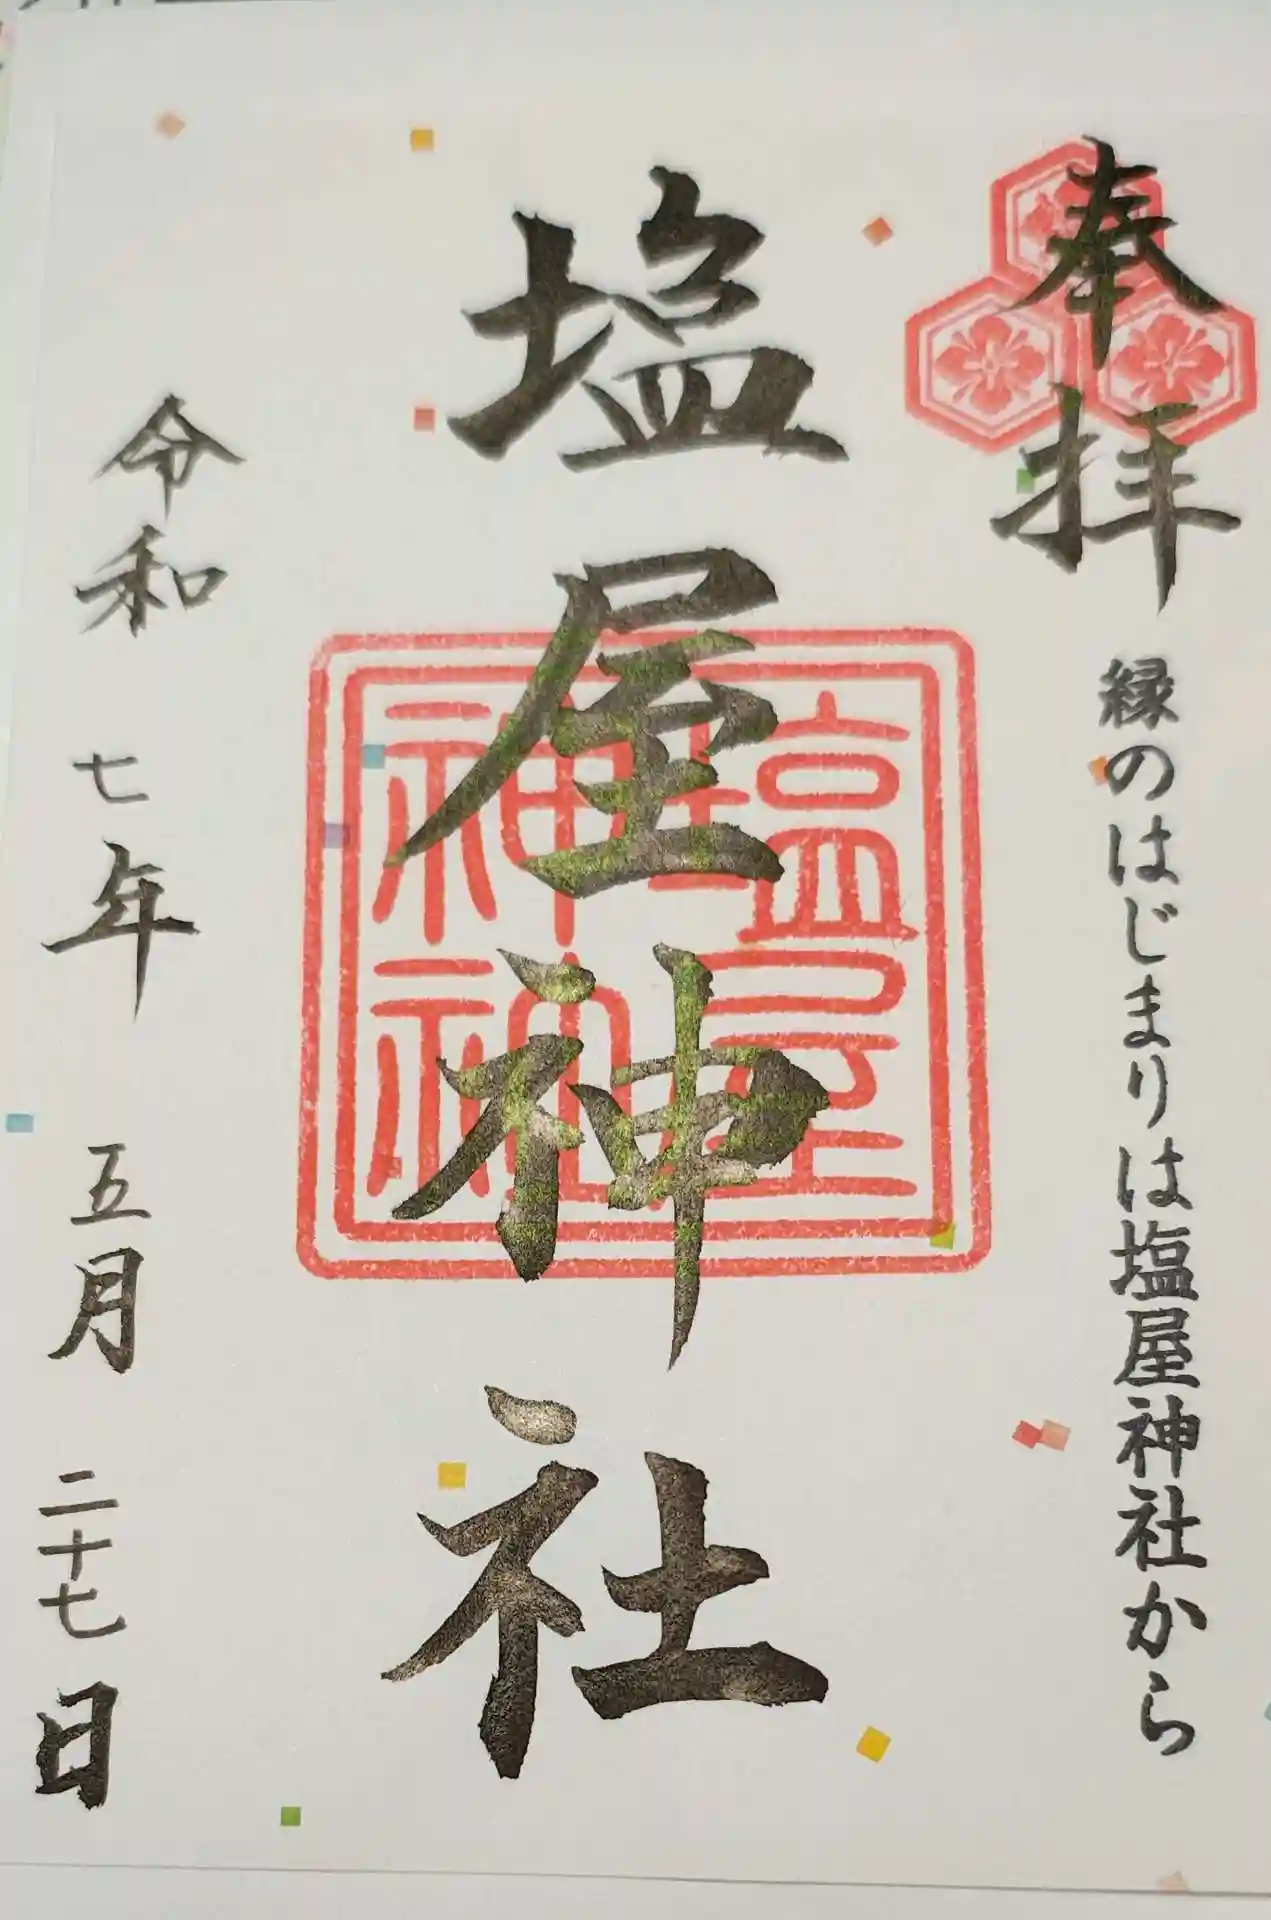 奉拝
縁のはじまりは塩屋神社から
塩屋神社
塩屋
神社
令和七年五月二十七日